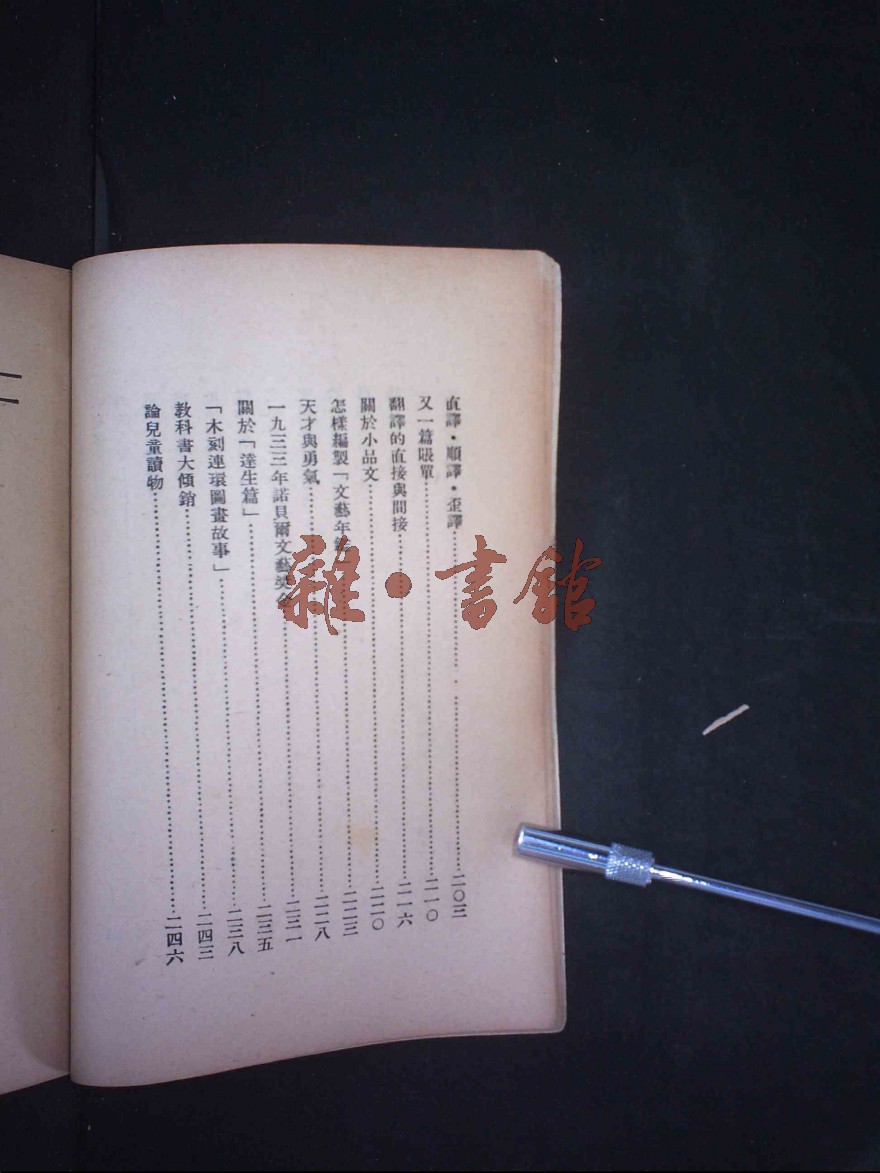 直譯・順譯・歪譯……二〇三
又一篇賬單……二一〇
翻譯的直接與間接……二一六
關於小品文……二二〇
怎樣編製「文藝年……二二三
天才與勇氣……二二八
一九三三年諾貝爾文藝獎……二三一
關於「達生篇」……二三五
「木刻連環圖畫故事」……二三八
教科書大傾銷……二四三
論兒童讀物……二四六
雜・書館